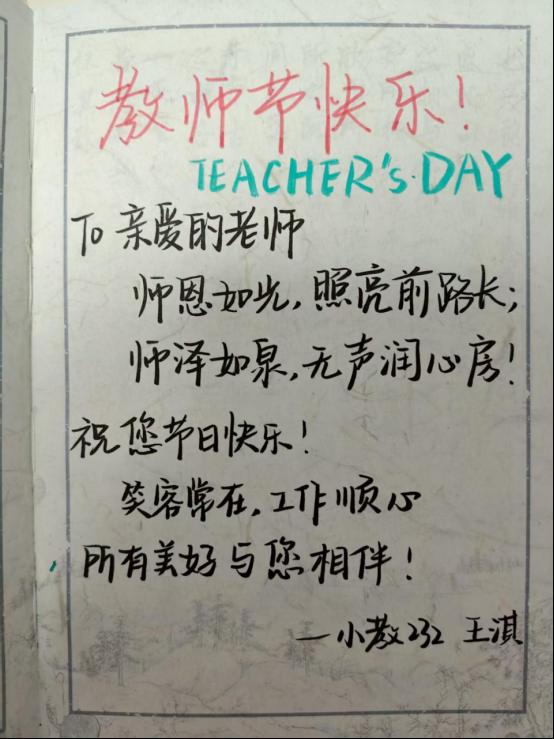 教师节快乐!
TEACHER's·DAY
To 亲爱的老师
师恩如光,照亮前路长;
师泽如泉,无声润心房!
祝您节日快乐!
笑容常在,工作顺心
所有美好与您相伴!
—小教232 王淇